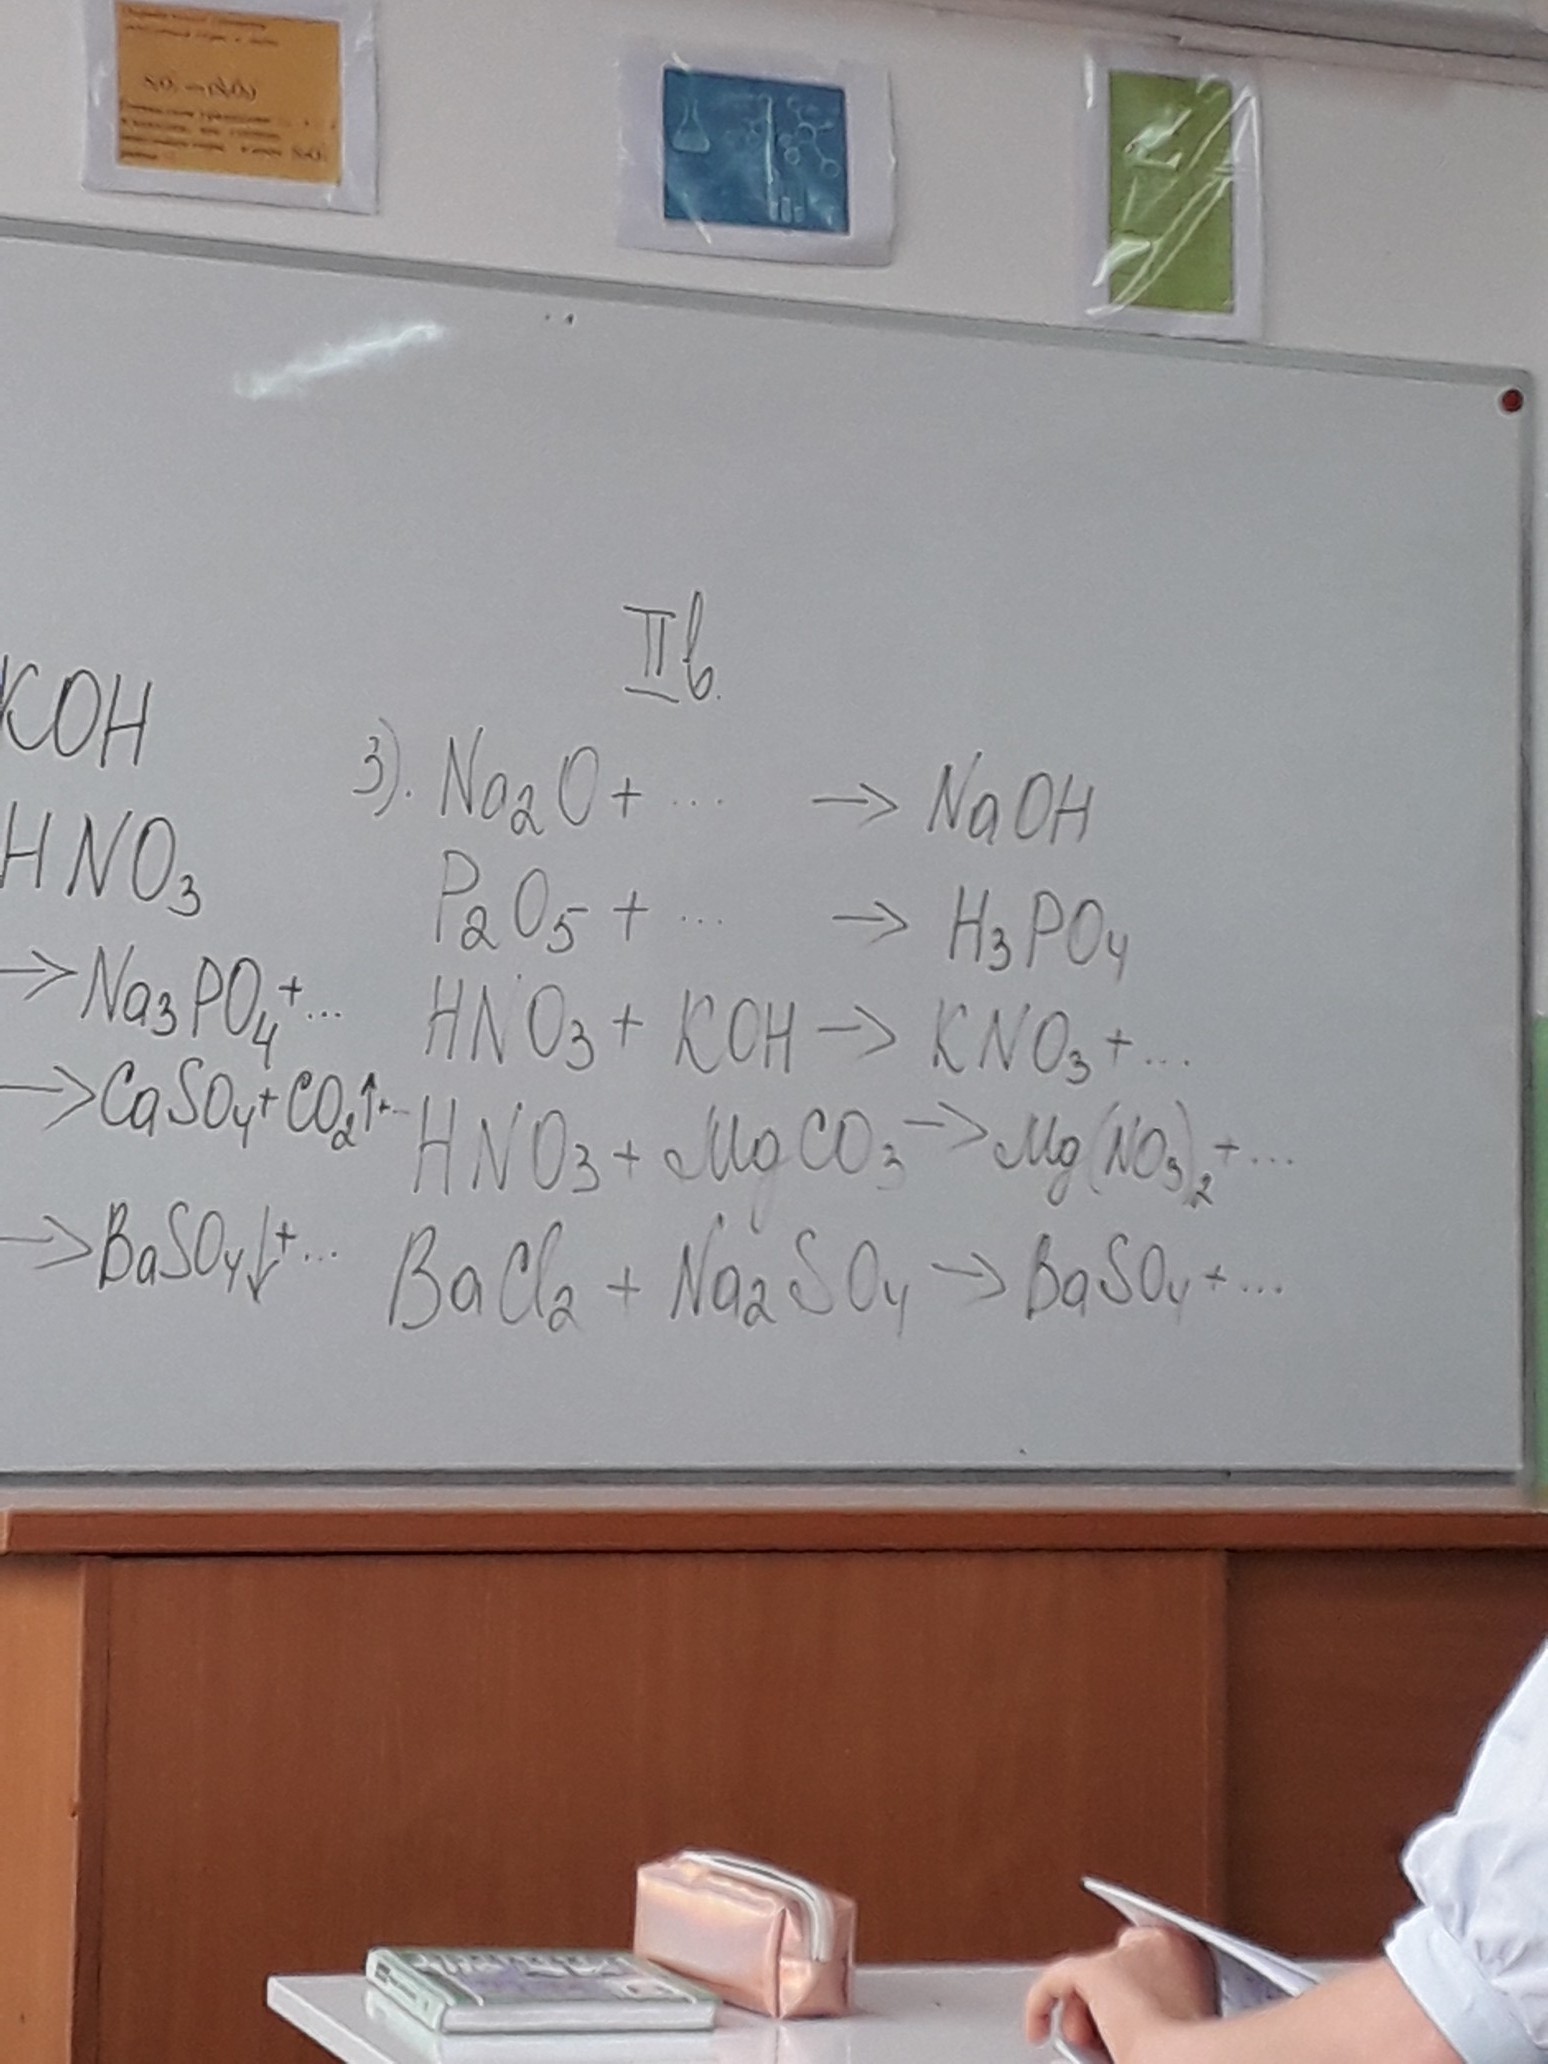 II в.
KOH
HNO3
→ Na3PO4 + ...
→ CaSO4 + CO2↑ + ...
→ BaSO4↓ + ...
3). Na2O + ... → NaOH
P2O5 + ... → H3PO4
HNO3 + KOH → KNO3 + ...
HNO3 + MgCO3 → Mg(NO3)2 + ...
BaCl2 + Na2SO4 → BaSO4 + ...